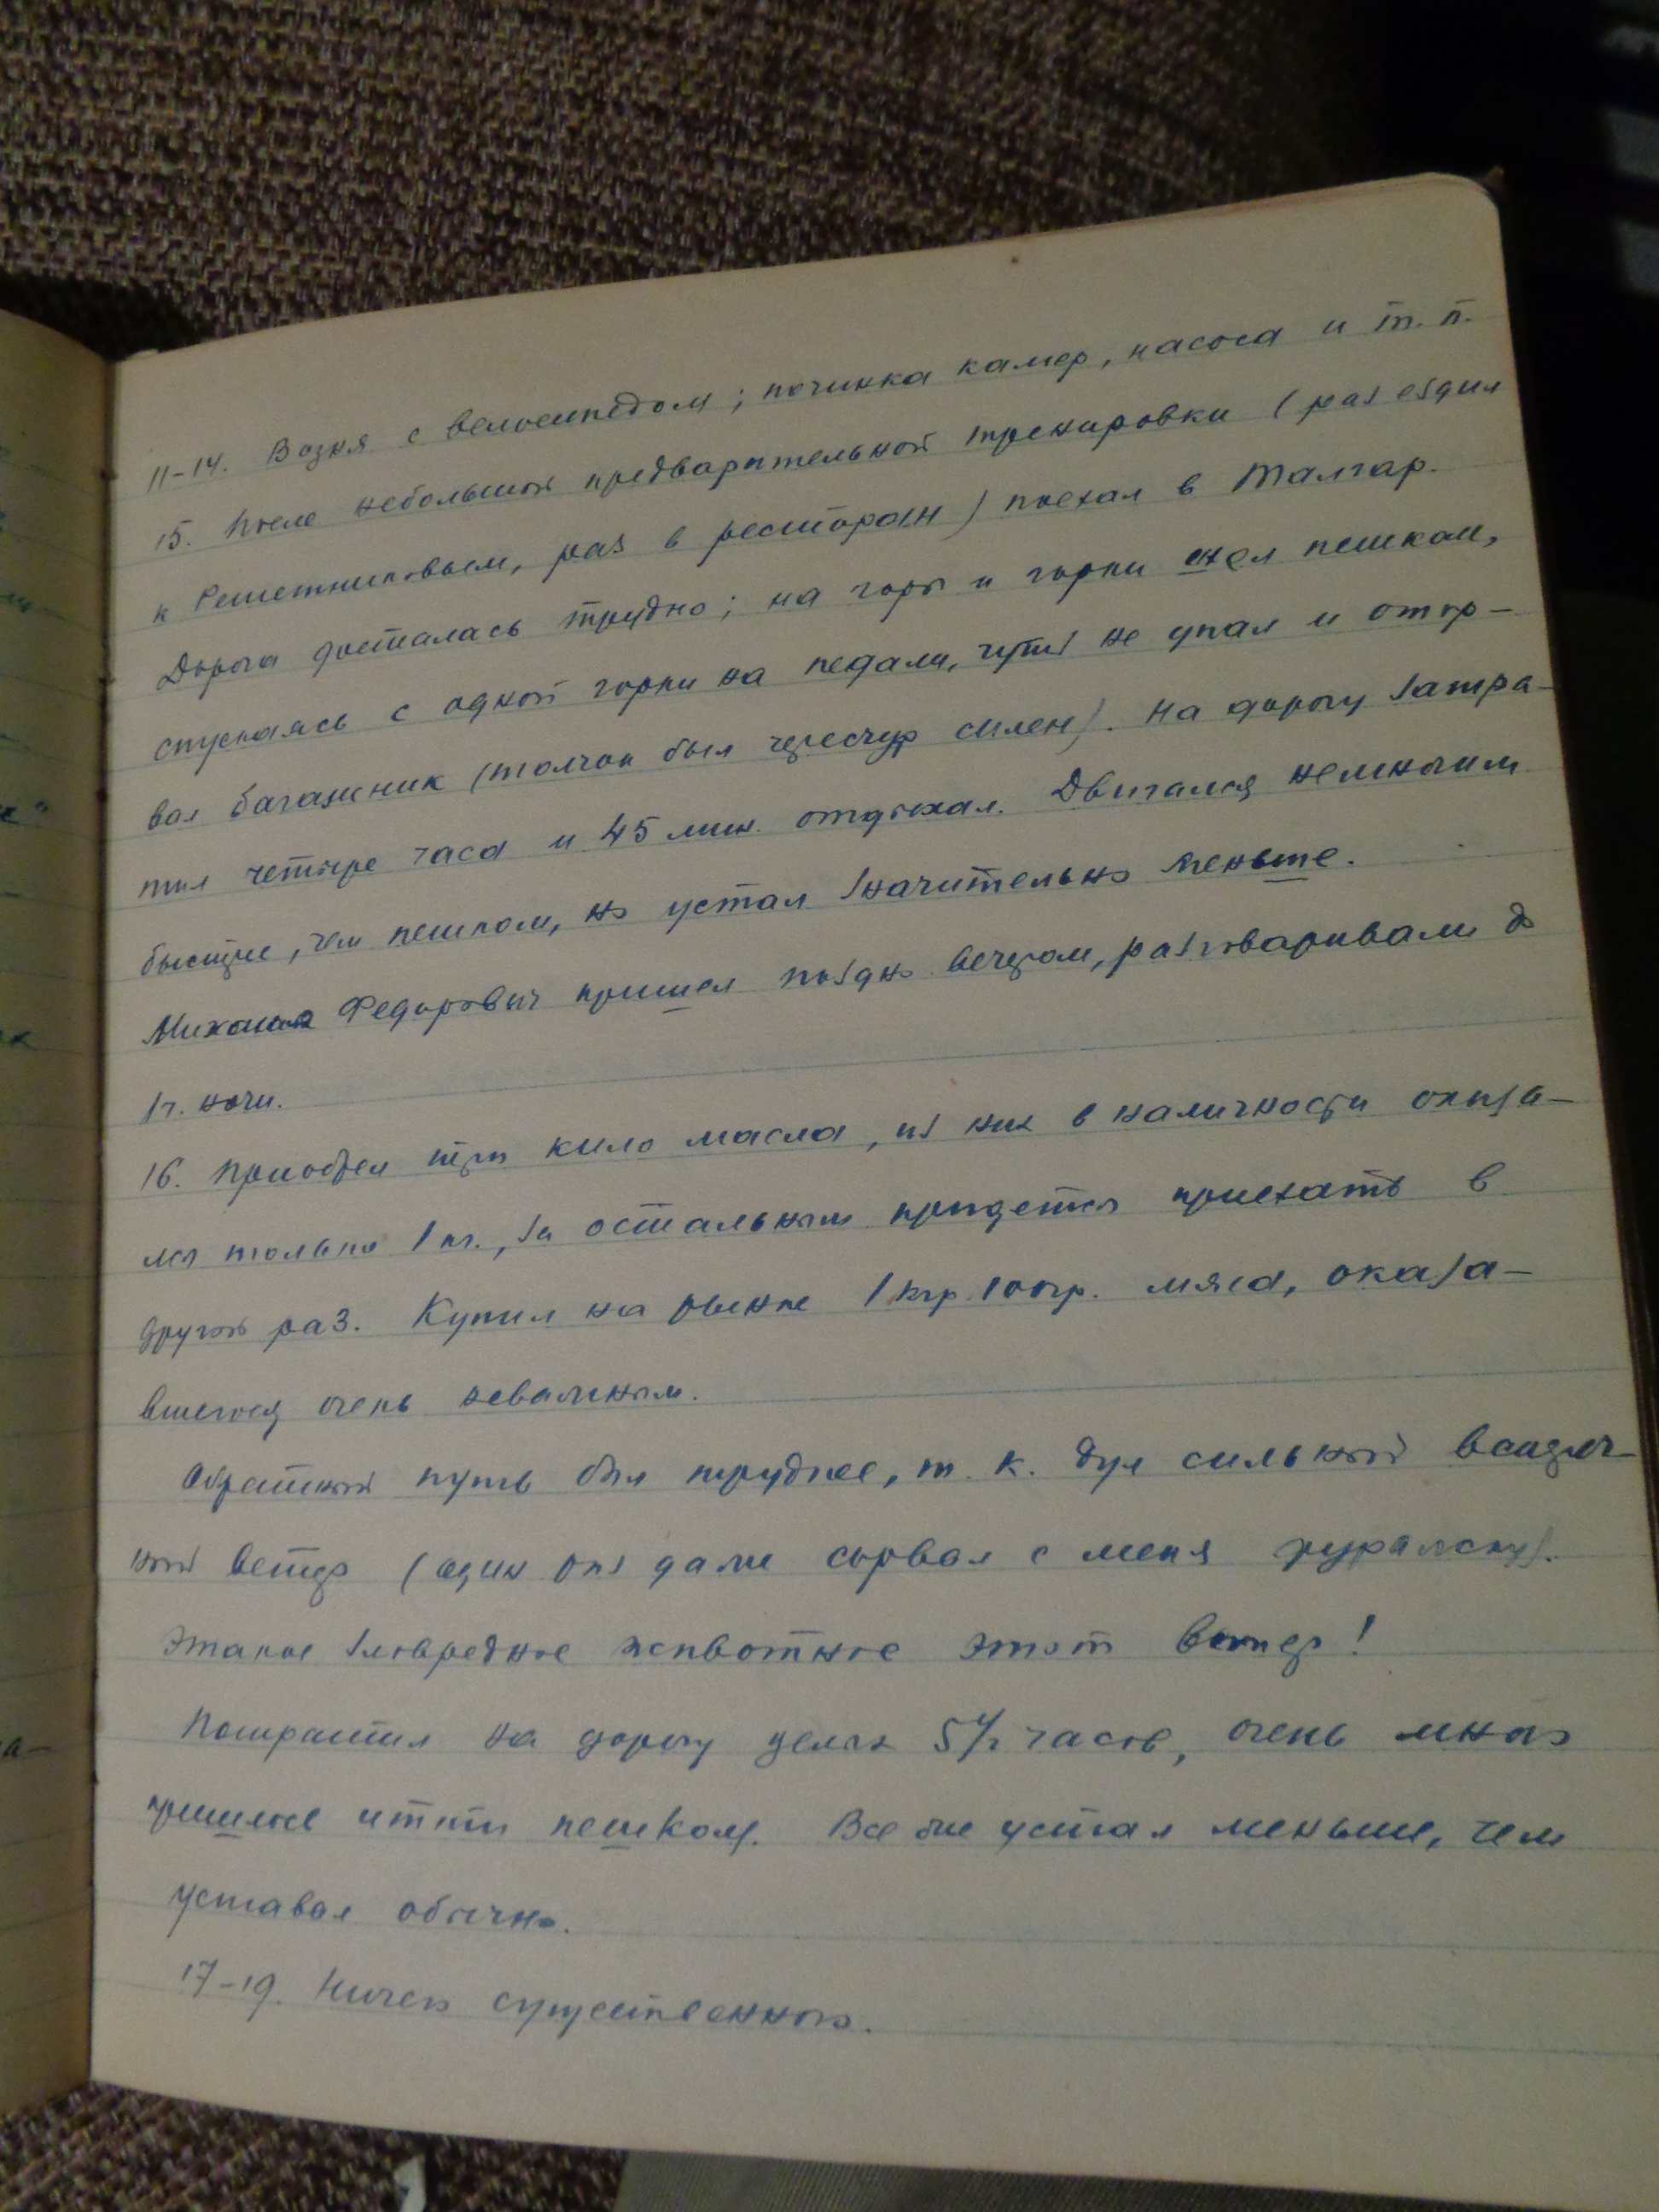 11-14. Возня с велосипедом; починка камер, насоса и т. п.
15. После небольшой предварительной тренировки (раз ездил
к Решетниковым, раз в ресторан) поехал в Талгар.
Дорога досталась трудно; на горы и горки шел пешком,
спускаясь с одной горки на педали, чуть не упал и отор-
вал багажник (толчок был чересчур силен). На дорогу затра-
тил четыре часа и 45 мин. отдыхал. Двигался немногим
быстрее, чем пешком, но устал значительно меньше.
Михаил Федорович пришел поздно вечером, разговаривали до
1 ч. ночи.
16. Приобрел три кило масла, из них в наличности оказа-
лся только 1 кг., за остальным придется приехать в
другой раз. Купил на рынке 1 кгр 100 гр. мяса, оказа-
вшегося очень неважным.
Обратный путь был труднее, т. к. дул сильный встреч-
ный ветер (один раз даже сорвал с меня фуражку).
Этакое зловредное животное этот ветер!
Потратил на дорогу целых 5 1/2 часов, очень много
пришлось итти пешком. Все же устал меньше, чем
уставал обычно.
17-19. Ничего существенного.